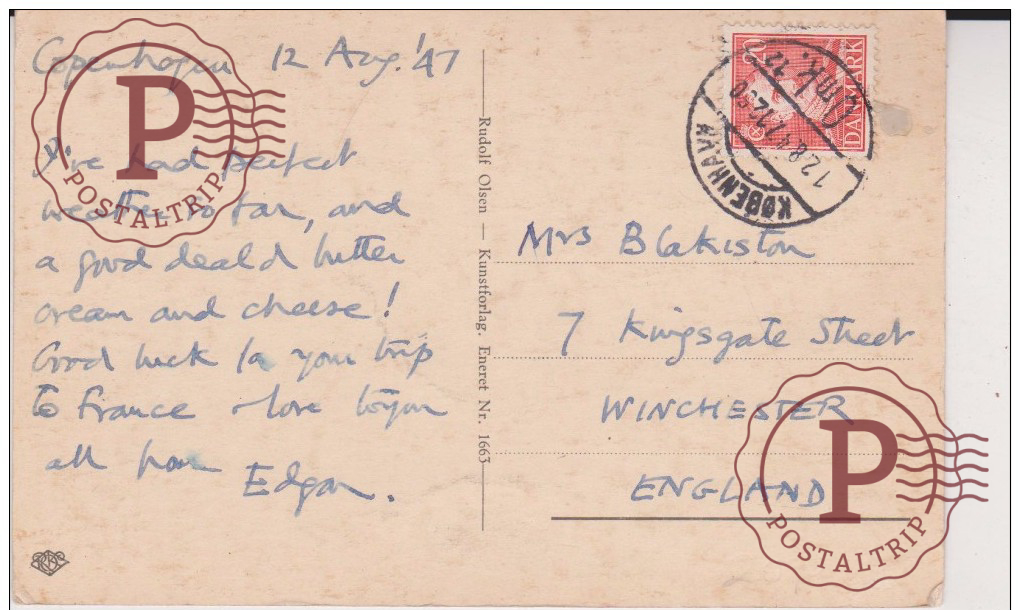 Copenhagen 12 Aug. '47
I've had perfect
weather so far, and
a good deal of butter
cream and cheese!
Good luck for your trip
to France & love to you
all from
Edgar.
Rudolf Olsen — Kunstforlag. Eneret Nr. 1663
20
DANMARK
KØBENHAVN
12.8.47.
Omk.
Mrs Blakiston
7 Kingsgate Street
WINCHESTER
ENGLAND
P
POSTALTRIP
P
POSTALTRIP